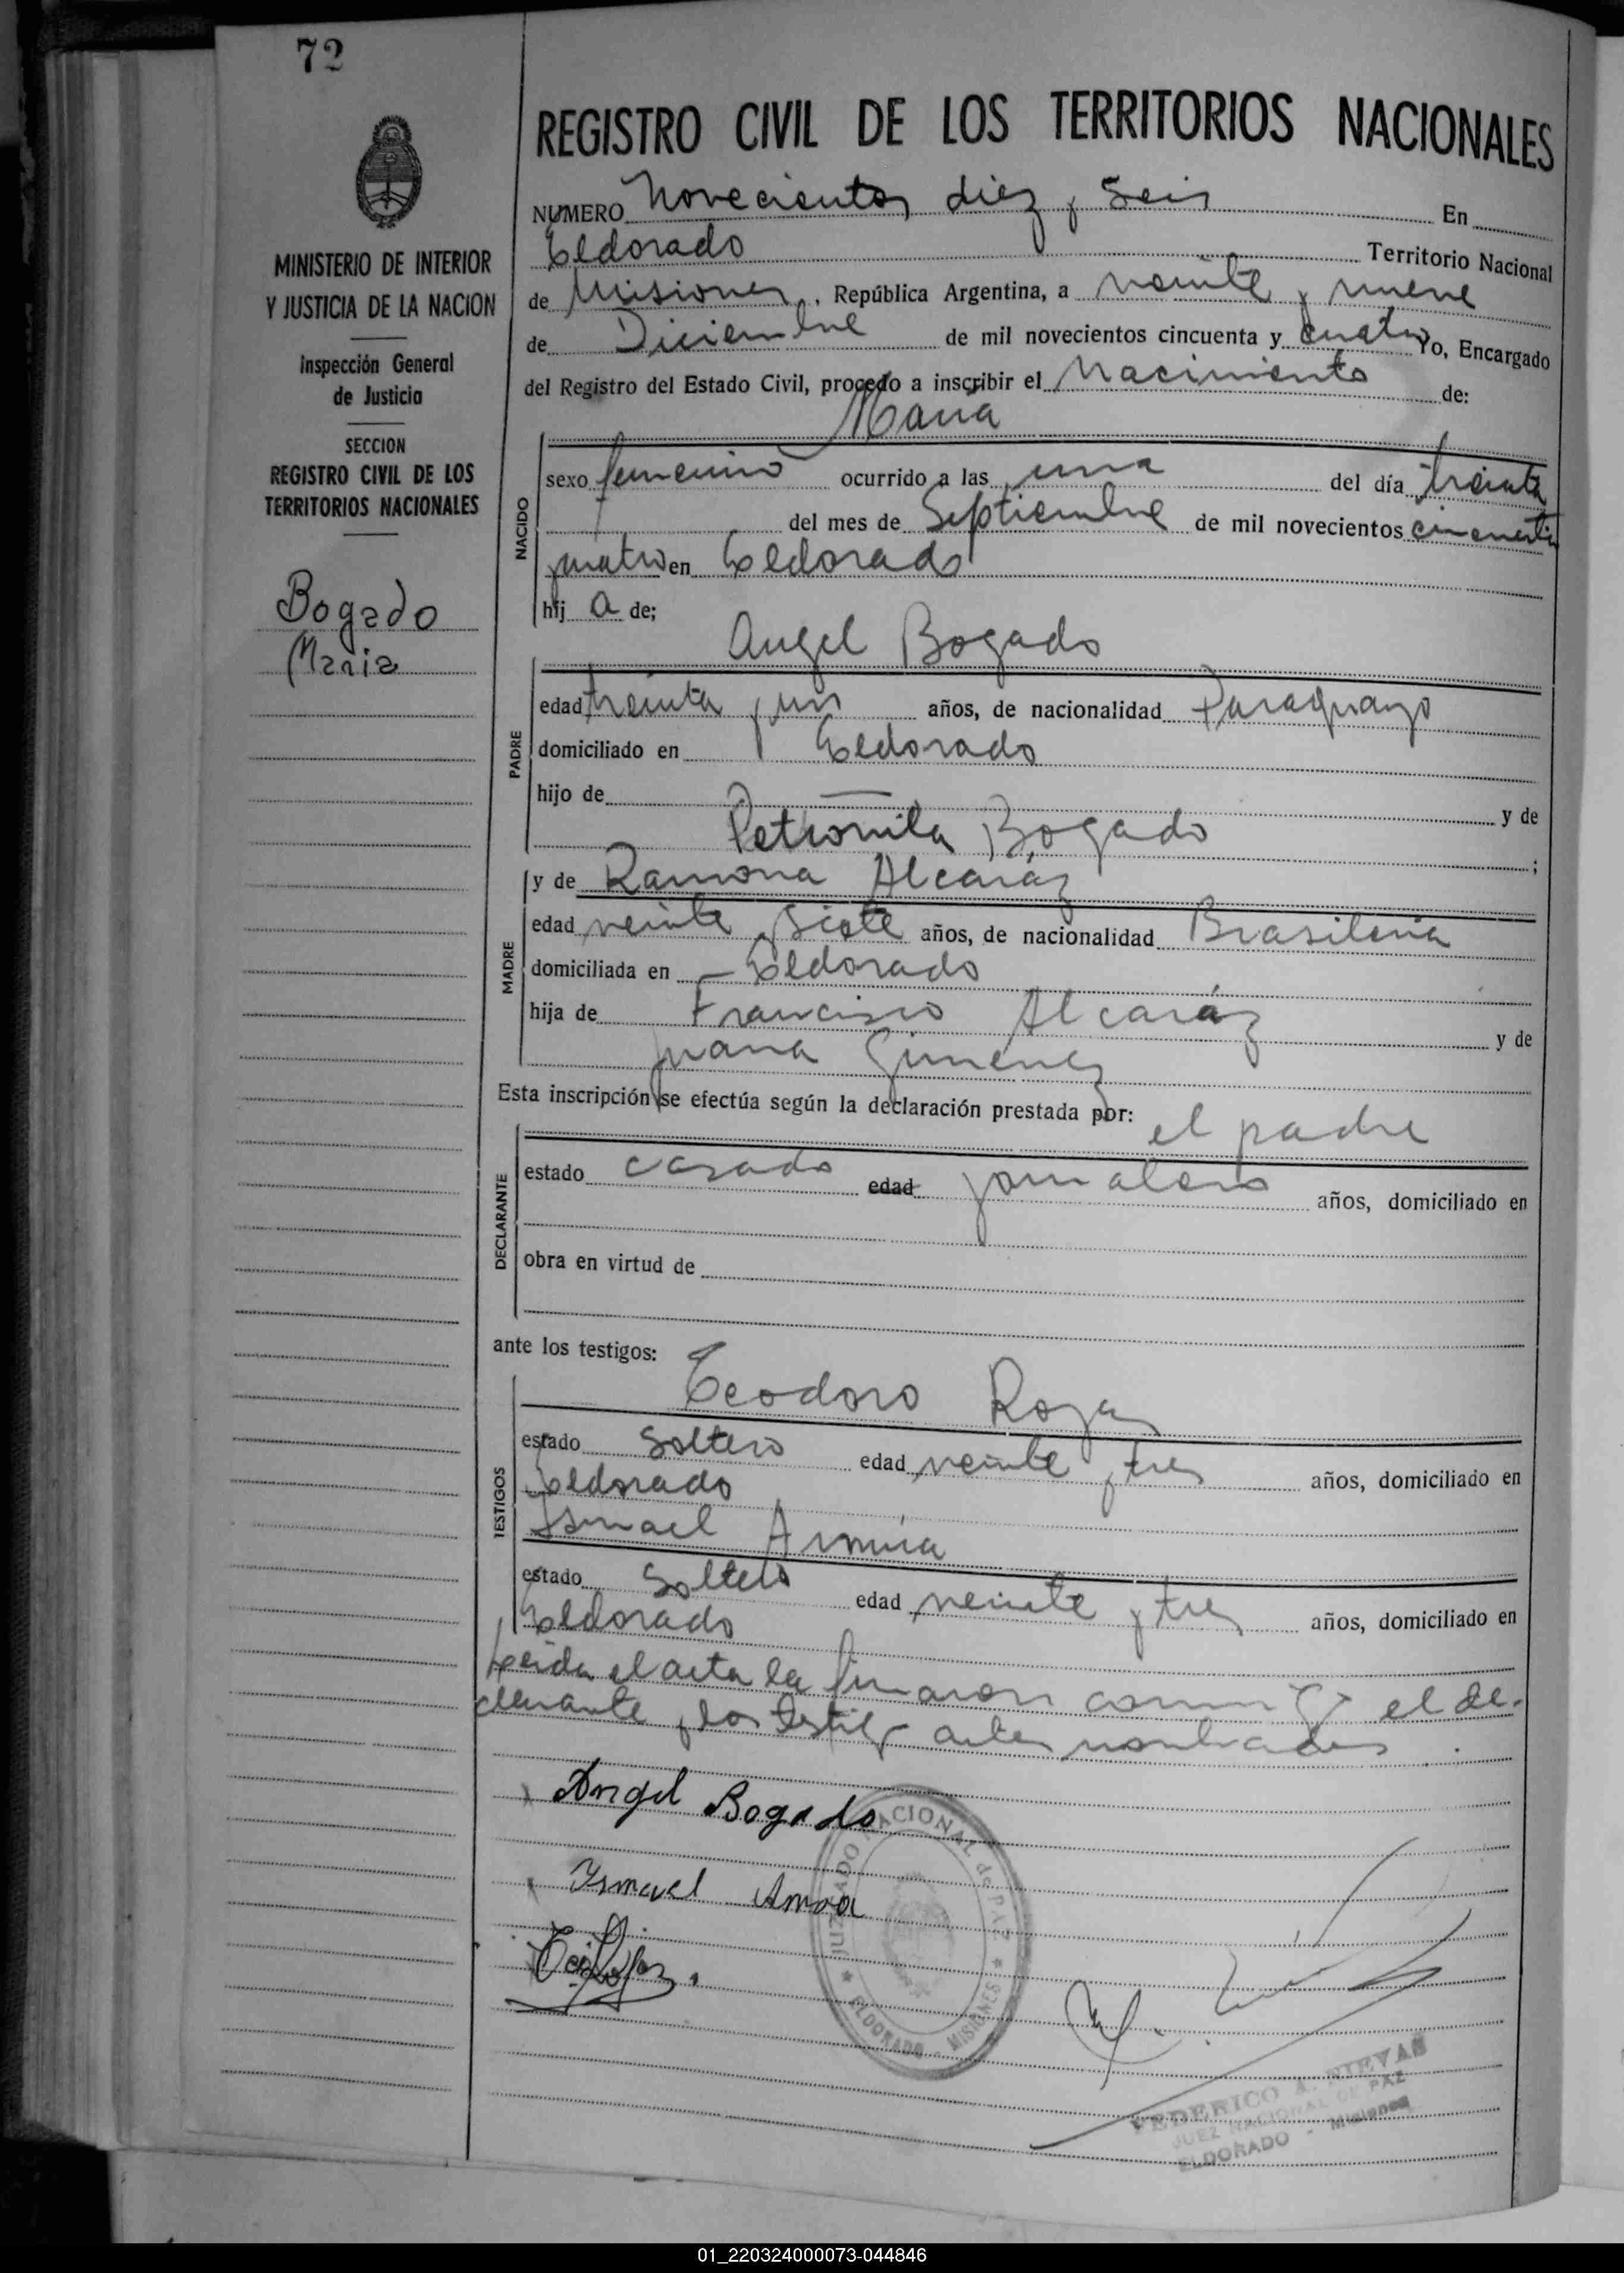 72
REGISTRO CIVIL DE LOS TERRITORIOS NACIONALES
MINISTERIO DE INTERIOR
Y JUSTICIA DE LA NACION
Inspección General
de Justicia
SECCION
REGISTRO CIVIL DE LOS
TERRITORIOS NACIONALES
Bogado
Maria
NUMERO novecientos diez y seis En
Eldorado Territorio Nacional
de Misiones, República Argentina, a veinte y nueve
de Diciembre de mil novecientos cincuenta y cuatro Yo, Encargado
del Registro del Estado Civil, procedo a inscribir el Nacimiento de:
Maria
NACIDO
sexo femenino ocurrido a las una del día treinta
del mes de Septiembre de mil novecientos cincuenta
y cuatro en Eldorado
hij a de;
Angel Bogado
PADRE
edad treinta y un años, de nacionalidad Paraguayo
domiciliado en Eldorado
hijo de — y de
Petronila Bogado ;
y de Ramona Alcaráz
MADRE
edad veinte y siete años, de nacionalidad Brasileña
domiciliada en Eldorado
hija de Francisco Alcaráz y de
Juana Gimenez
Esta inscripción se efectúa según la declaración prestada por: el padre
DECLARANTE
estado casado edad jornalero años, domiciliado en
obra en virtud de
ante los testigos:
Teodoro Rojas
TESTIGOS
estado soltero edad veinte y tres años, domiciliado en
Eldorado
Ismael
estado soltero edad veinte y tres años, domiciliado en
Eldorado
Leida el acta la firmaron conmigo el de-
clarante y los testigos antes nombrados.
Angel Bogado
Ismael
JUZGADO NACIONAL de PAZ
ELDORADO - MISIONES
FEDERICO A. NIEVAS
JUEZ NACIONAL DE PAZ
ELDORADO - Misiones
01_220324000073-044846